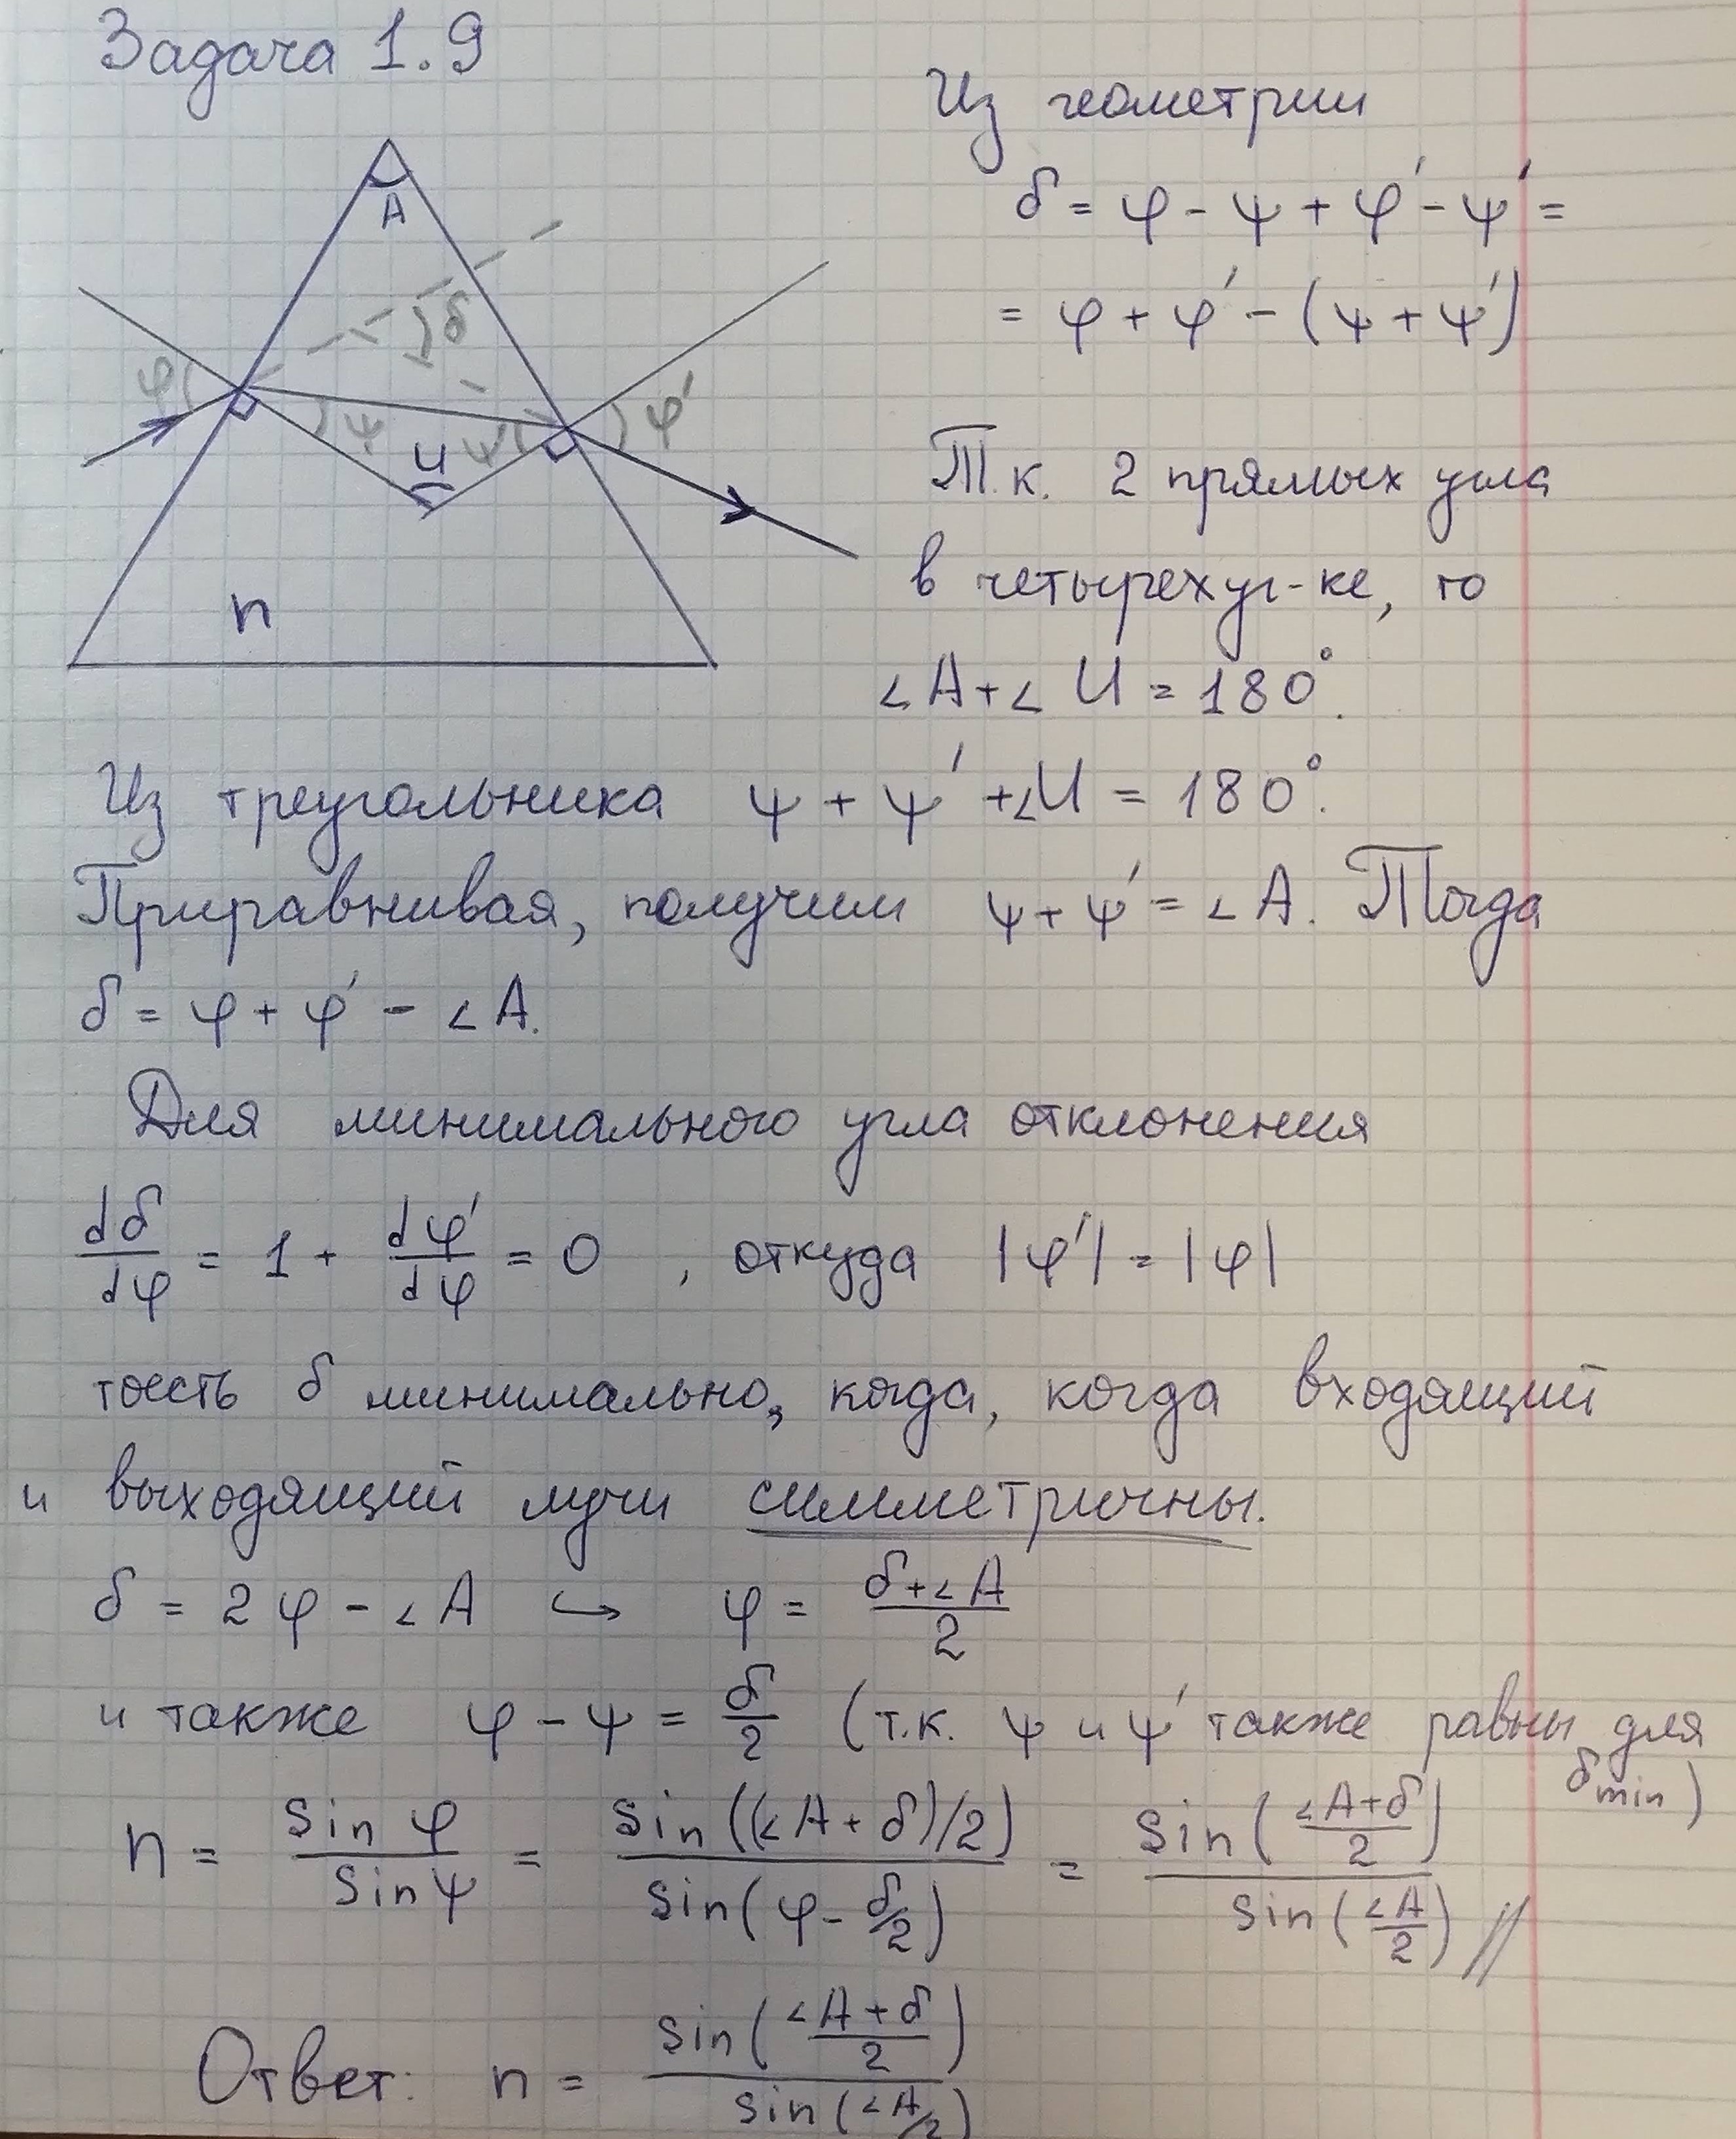 Задача 1.9
A
δ
φ
ψ
И
ψ'
φ'
n
Из геометрии
δ = φ - ψ + φ' - ψ' =
= φ + φ' - (ψ + ψ')
Т.к. 2 прямых угла
в четырехуг-ке, то
∠A + ∠И = 180°.
Из треугольника ψ + ψ' + ∠И = 180°.
Приравнивая, получим ψ + ψ' = ∠A. Тогда
δ = φ + φ' - ∠A.
Для минимального угла отклонения
dδ/dφ = 1 + dφ'/dφ = 0 , откуда |φ'| = |φ|
тоесть δ минимально, когда, когда входящий
и выходящий лучи симметричны.
δ = 2φ - ∠A ↪ φ = (δ+∠A)/2
и также φ - ψ = δ/2 (т.к. ψ и ψ' также равны для
δmin)
n = sin φ / sin ψ = sin((∠A + δ)/2) / sin(φ - δ/2) = sin(∠A+δ / 2) / sin(∠A/2) //
Ответ: n = sin(∠A+δ / 2) / sin(∠A/2)